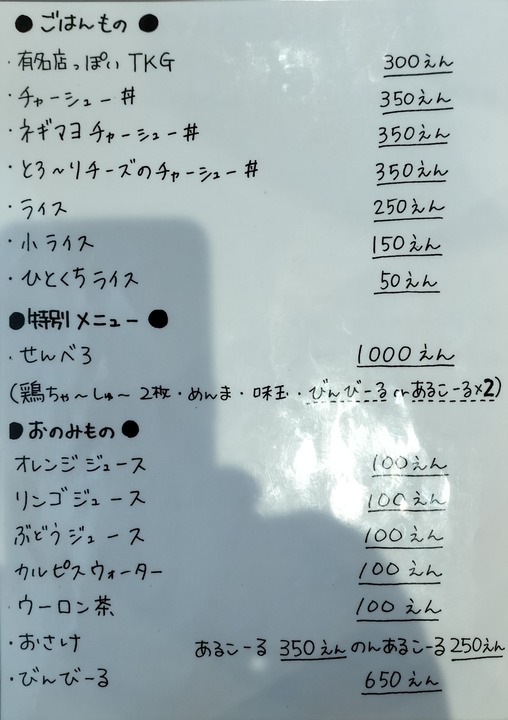 ● ごはんもの ●
・有名店っぽい TKG 300えん
・チャーシュー丼 350えん
・ネギマヨチャーシュー丼 350えん
・とろ〜りチーズのチャーシュー丼 350えん
・ライス 250えん
・小ライス 150えん
・ひとくちライス 50えん
●特別メニュー●
・せんべろ 1000えん
(鶏ちゃ〜しゅ〜 2枚・めんま・味玉・びんびーる or あるこーる×2)
●おのみもの●
オレンジジュース 100えん
リンゴジュース 100えん
ぶどうジュース 100えん
カルピスウォーター 100えん
・ウーロン茶 100えん
・おさけ あるこーる 350えん のんあるこーる 250えん
・びんびーる 650えん